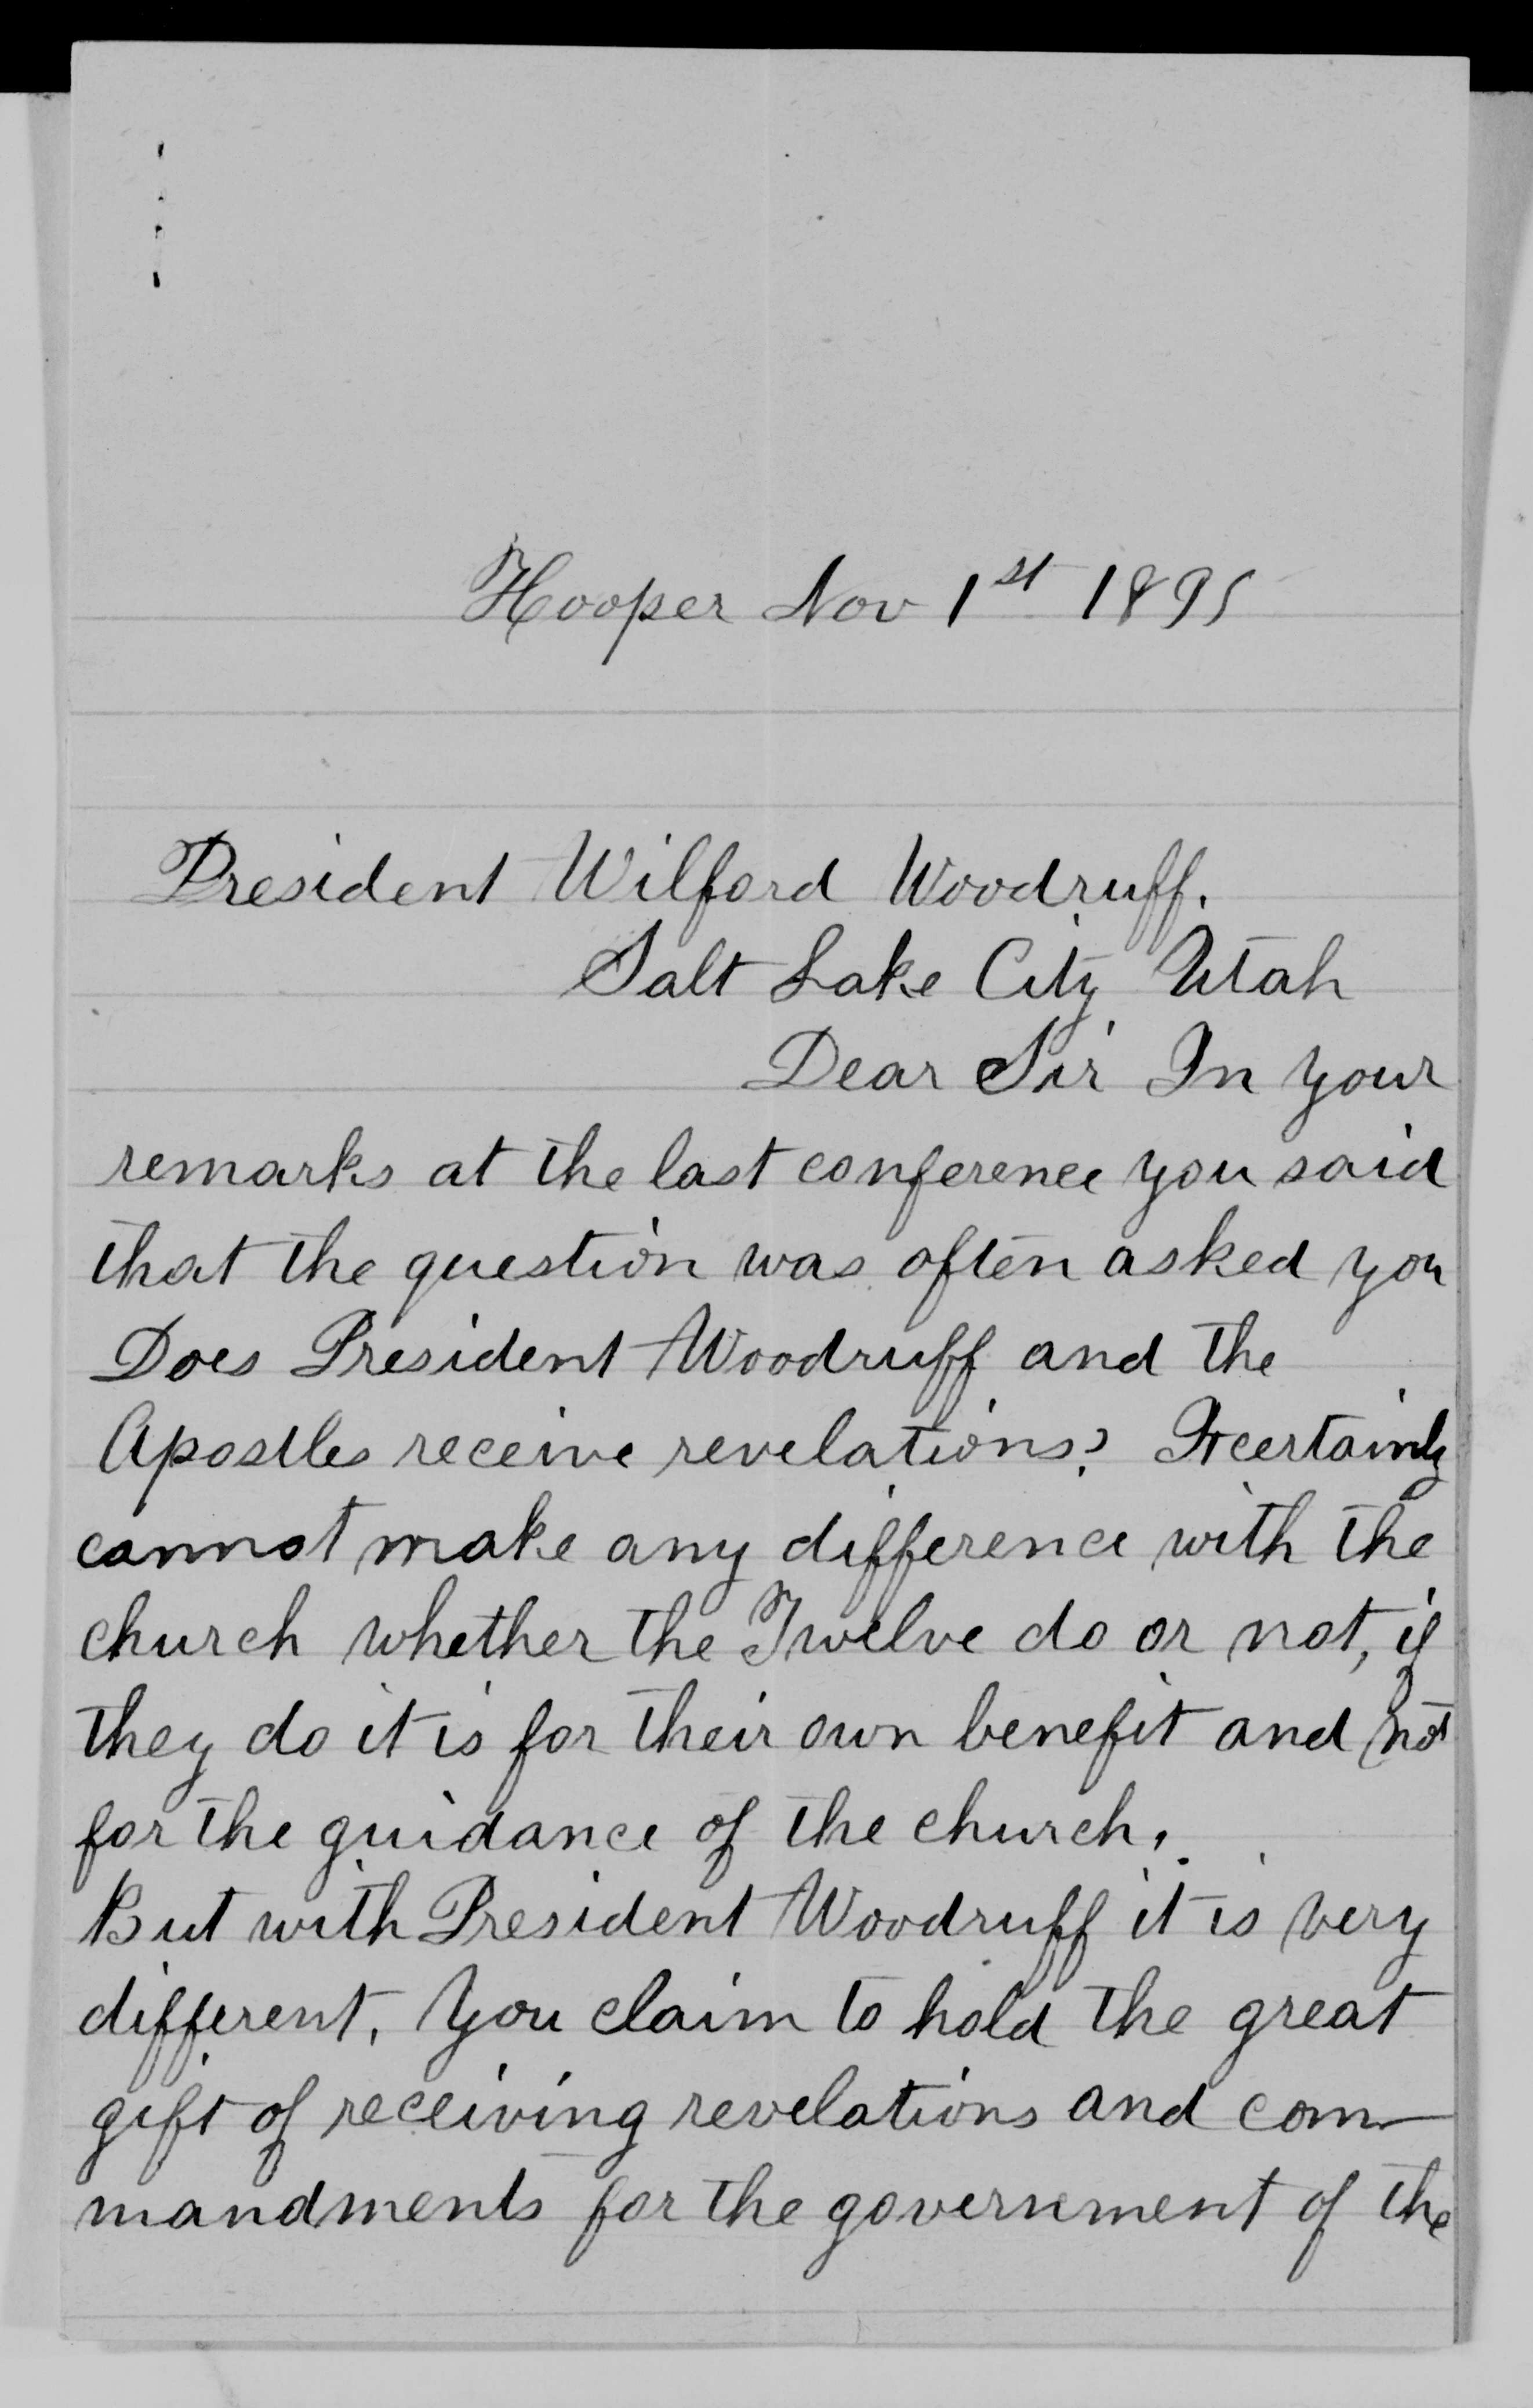 Hooper Nov 1st 1895
President Wilford Woodruff.
Salt Lake City Utah
Dear Sir In your
remarks at the last conference you said
that the question was often asked you
Does President Woodruff and the
Apostles receive revelations? It certainly
cannot make any difference with the
church whether the Twelve do or not, if
they do it is for their own benefit and not
for the guidance of the church.
But with President Woodruff it is very
different. You claim to hold the great
gift of receiving revelations and com-
mandments for the government of the